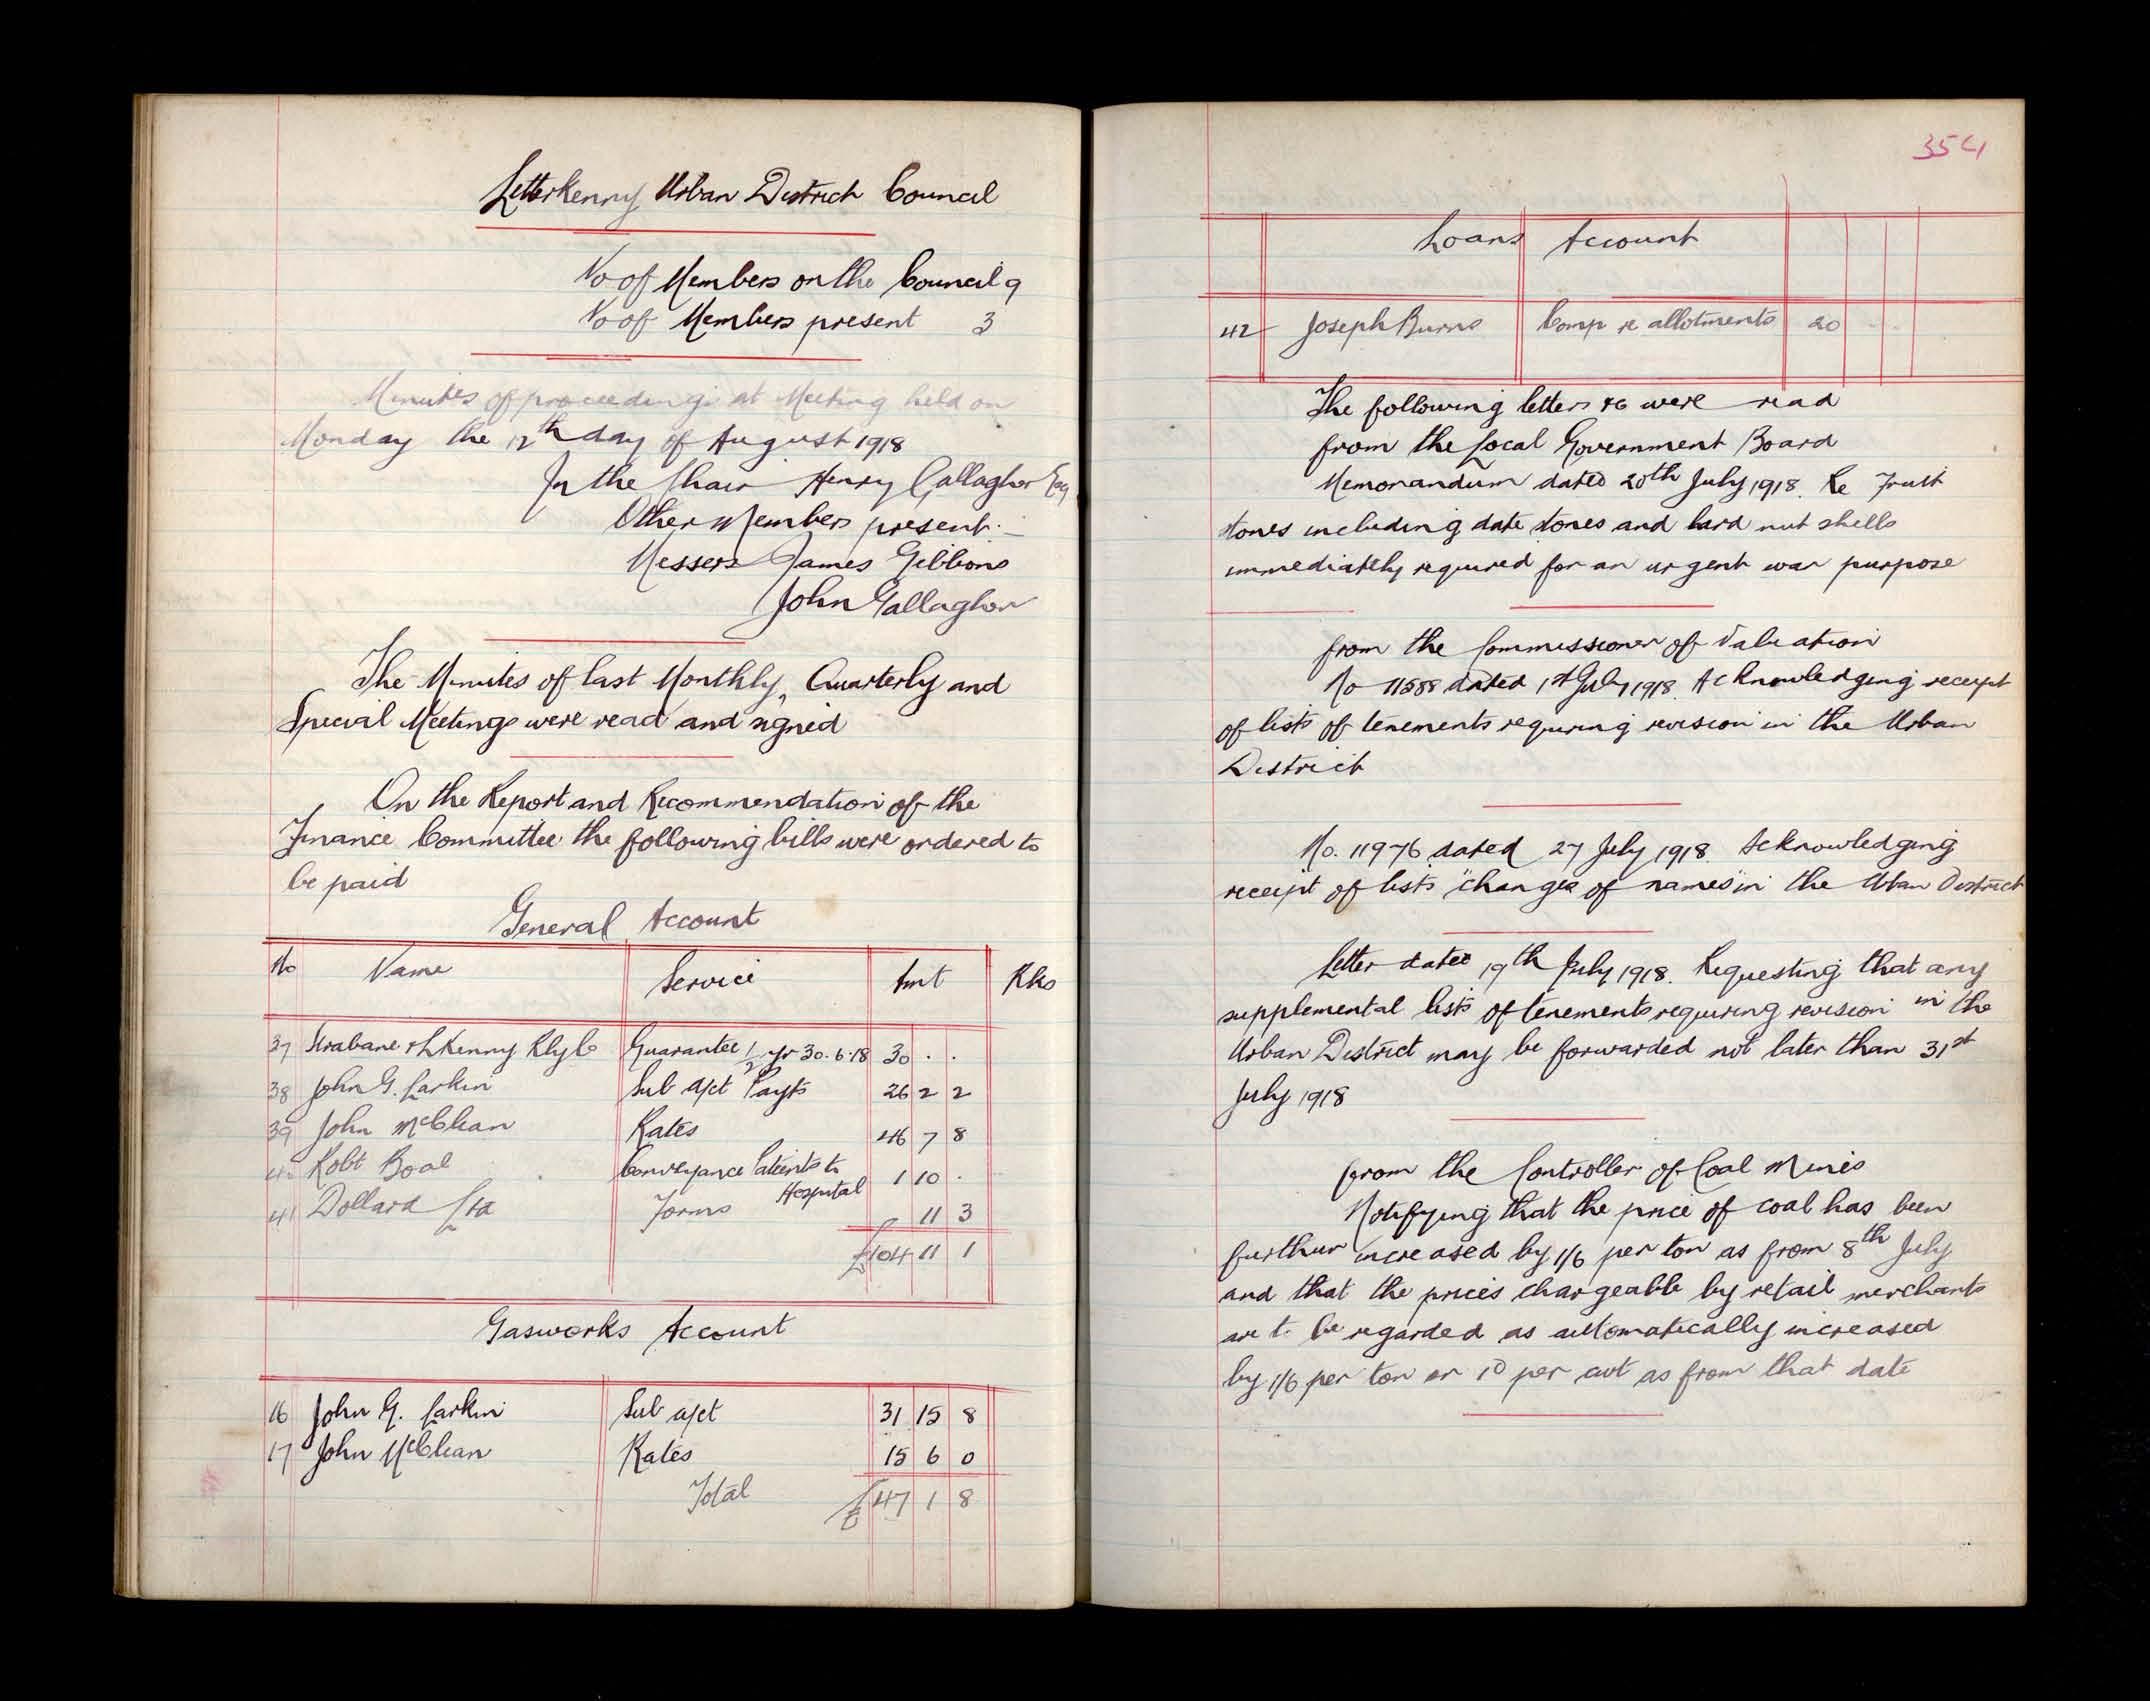 Letterkenny Urban District Council
No of Members on the Council 9
No of Members present 3
Minutes of proceedings at Meeting held on
Monday the 12th day of August 1918
In the Chair Henry Gallagher Esq
Other Members present:-
Messers James Gibbons
John Gallagher
The Minutes of last Monthly, Quarterly and
Special Meetings were read and signed
On the Report and Recommendation of the
Finance Committee the following bills were ordered to
be paid
General Account
No Name Service Amt Rks
37 Strabane & LKenny Rly Co Guarantee 1/2 yr 30.6.18 30 . .
38 John G. Larkin Sub a/ct Payts 26 2 2
39 John McClean Rates 46 7 8
40 Robt Boal Conveyance Patients to Hospital 1 10 .
41 Dollard Ltd Forms 11 3
£104 11 1
Gasworks Account
16 John G. Larkin Sub a/ct 31 15 8
17 John McClean Rates 15 6 0
Total £47 1 8
354
Loans Account
42 Joseph Burns Comp re allotments 20 . .
The following letters &c were read
from the Local Government Board
Memorandum dated 20th July 1918. Re Fruit
stones including date stones and hard nut shells
immediately required for an urgent war purpose
from the Commissioner of Valuation
No 11588 dated 1st July 1918. Acknowledging receipt
of lists of tenements requiring revision in the Urban
District
No. 11976 dated 27 July 1918. Acknowledging
receipt of lists "changes of names" in the Urban District
Letter dated 19th July 1918. Requesting that any
supplemental lists of tenements requiring revision in the
Urban District may be forwarded not later than 31st
July 1918
from the Controller of Coal Mines
Notifying that the price of coal has been
further increased by 1/6 per ton as from 8th July
and that the prices chargeable by retail merchants
are to be regarded as automatically increased
by 1/6 per ton or 1D per cwt as from that date